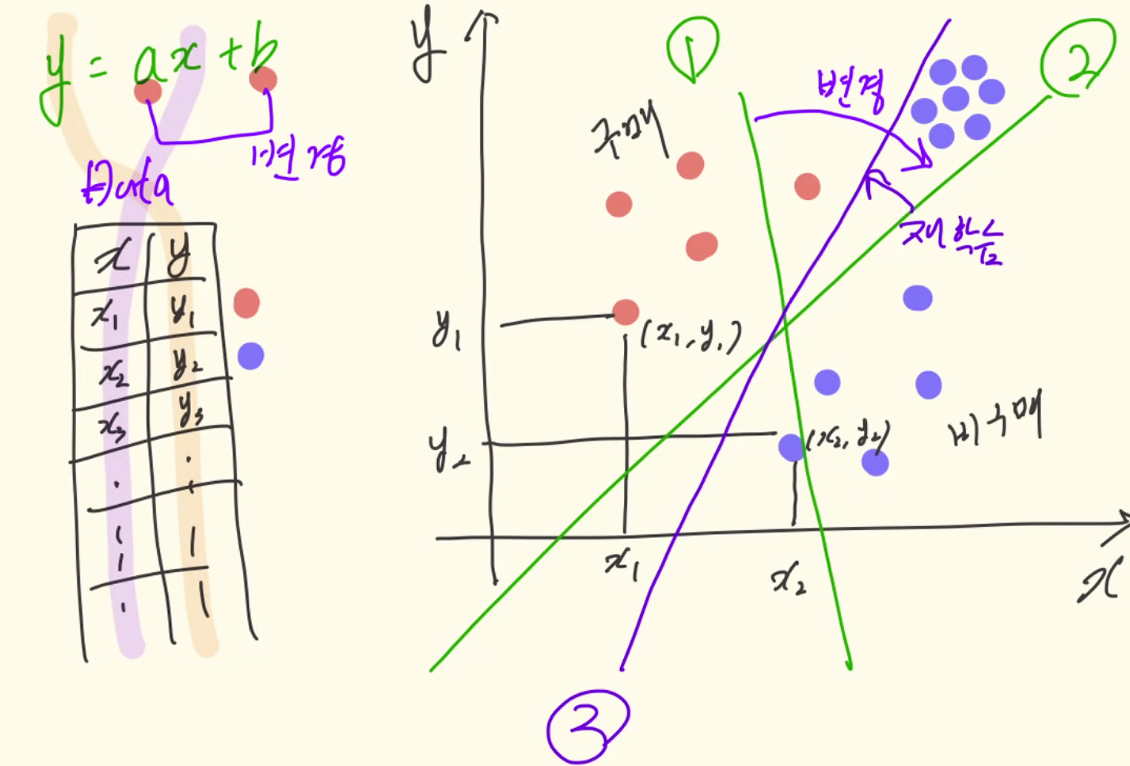 y = ax + b
변경
Data
x y
x₁ y₁
x₂ y₂
x₃ y₃
y
①
②
변경
구매
재학습
y₁
(x₁, y₁)
y₂
(x₂, y₂)
비구매
x₁
x₂
x
③